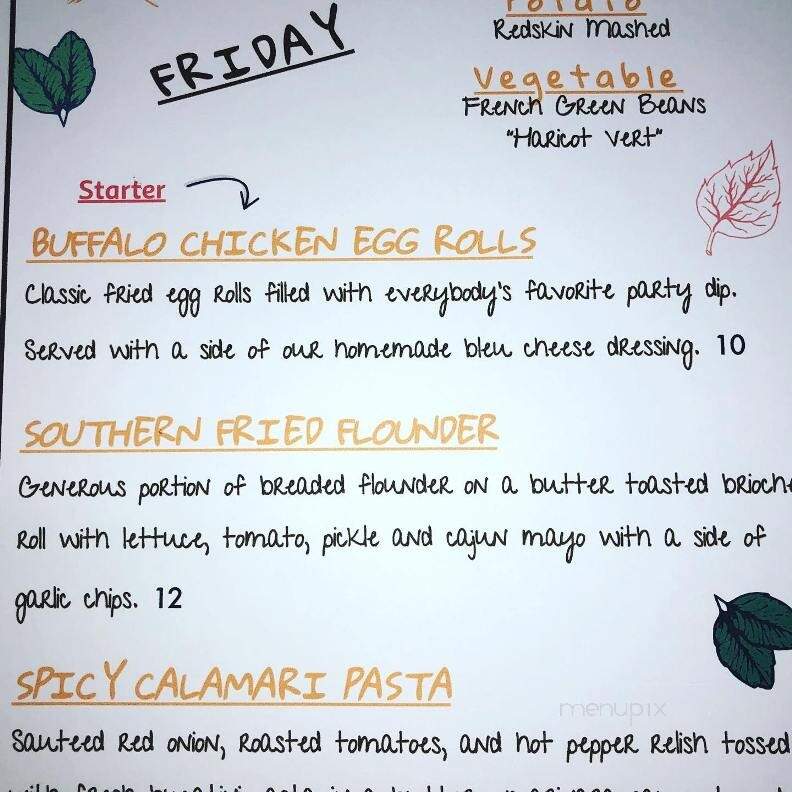 Potato
Redskin Mashed
FRIDAY
Vegetable
French Green Beans
"Haricot Vert"
Starter
BUFFALO CHICKEN EGG ROLLS
Classic fried egg rolls filled with everybody's favorite party dip.
Served with a side of our homemade bleu cheese dressing. 10
SOUTHERN FRIED FLOUNDER
Generous portion of breaded flounder on a butter toasted brioche
roll with lettuce, tomato, pickle and cajun mayo with a side of
garlic chips. 12
SPICY CALAMARI PASTA
menupix
Sauteed red onion, roasted tomatoes, and hot pepper relish tossed
with fresh